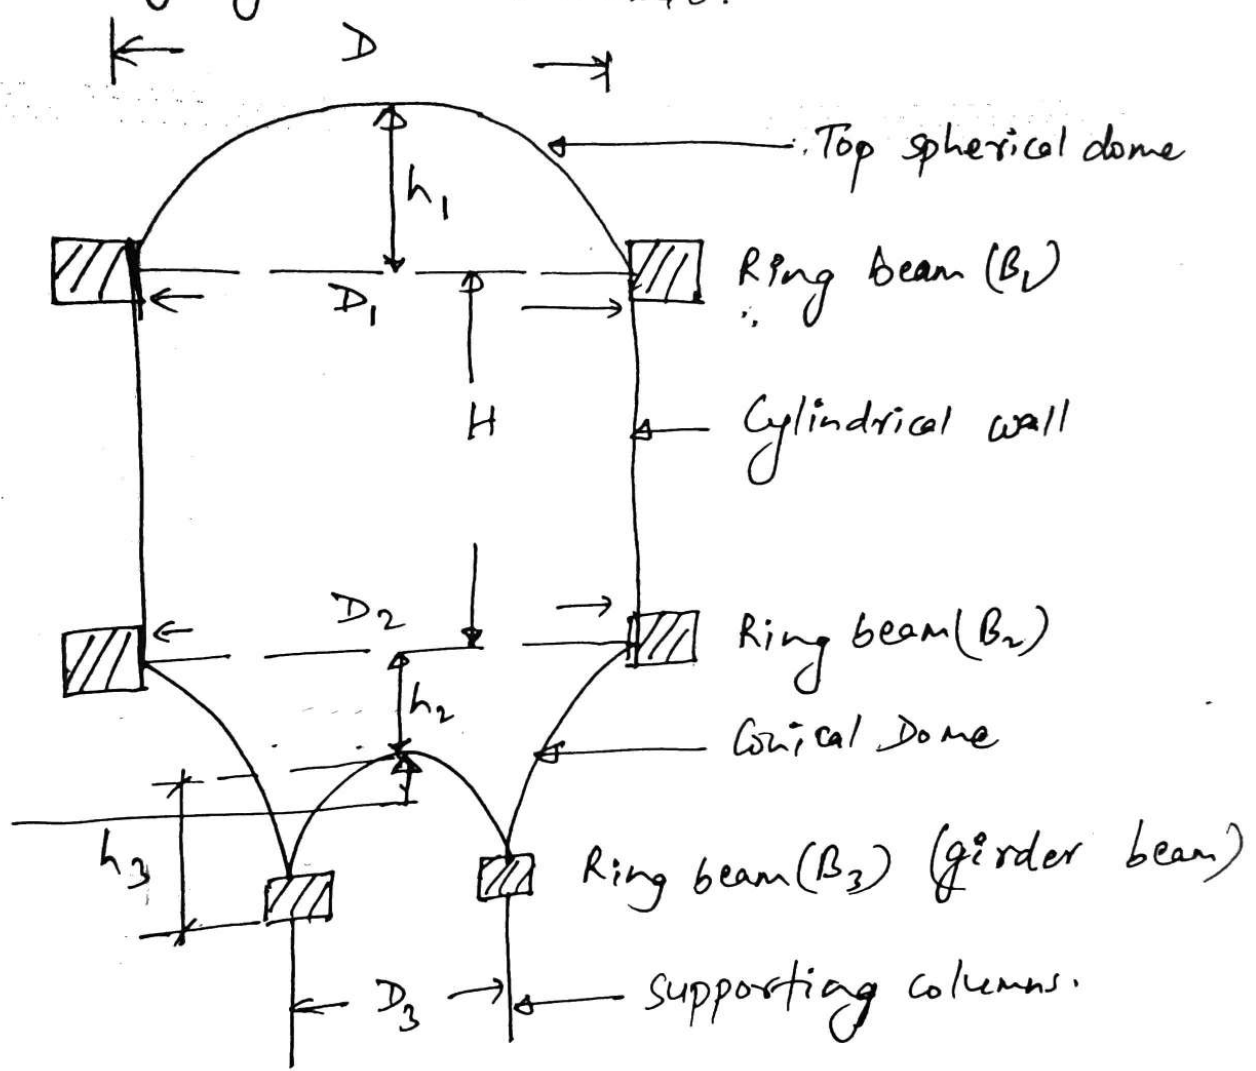 D
Top spherical dome
h1
Ring beam (B1)
D1
H
Cylindrical wall
D2
Ring beam (B2)
h2
Conical Dome
h3
Ring beam (B3) (girder beam)
D3
supporting columns.